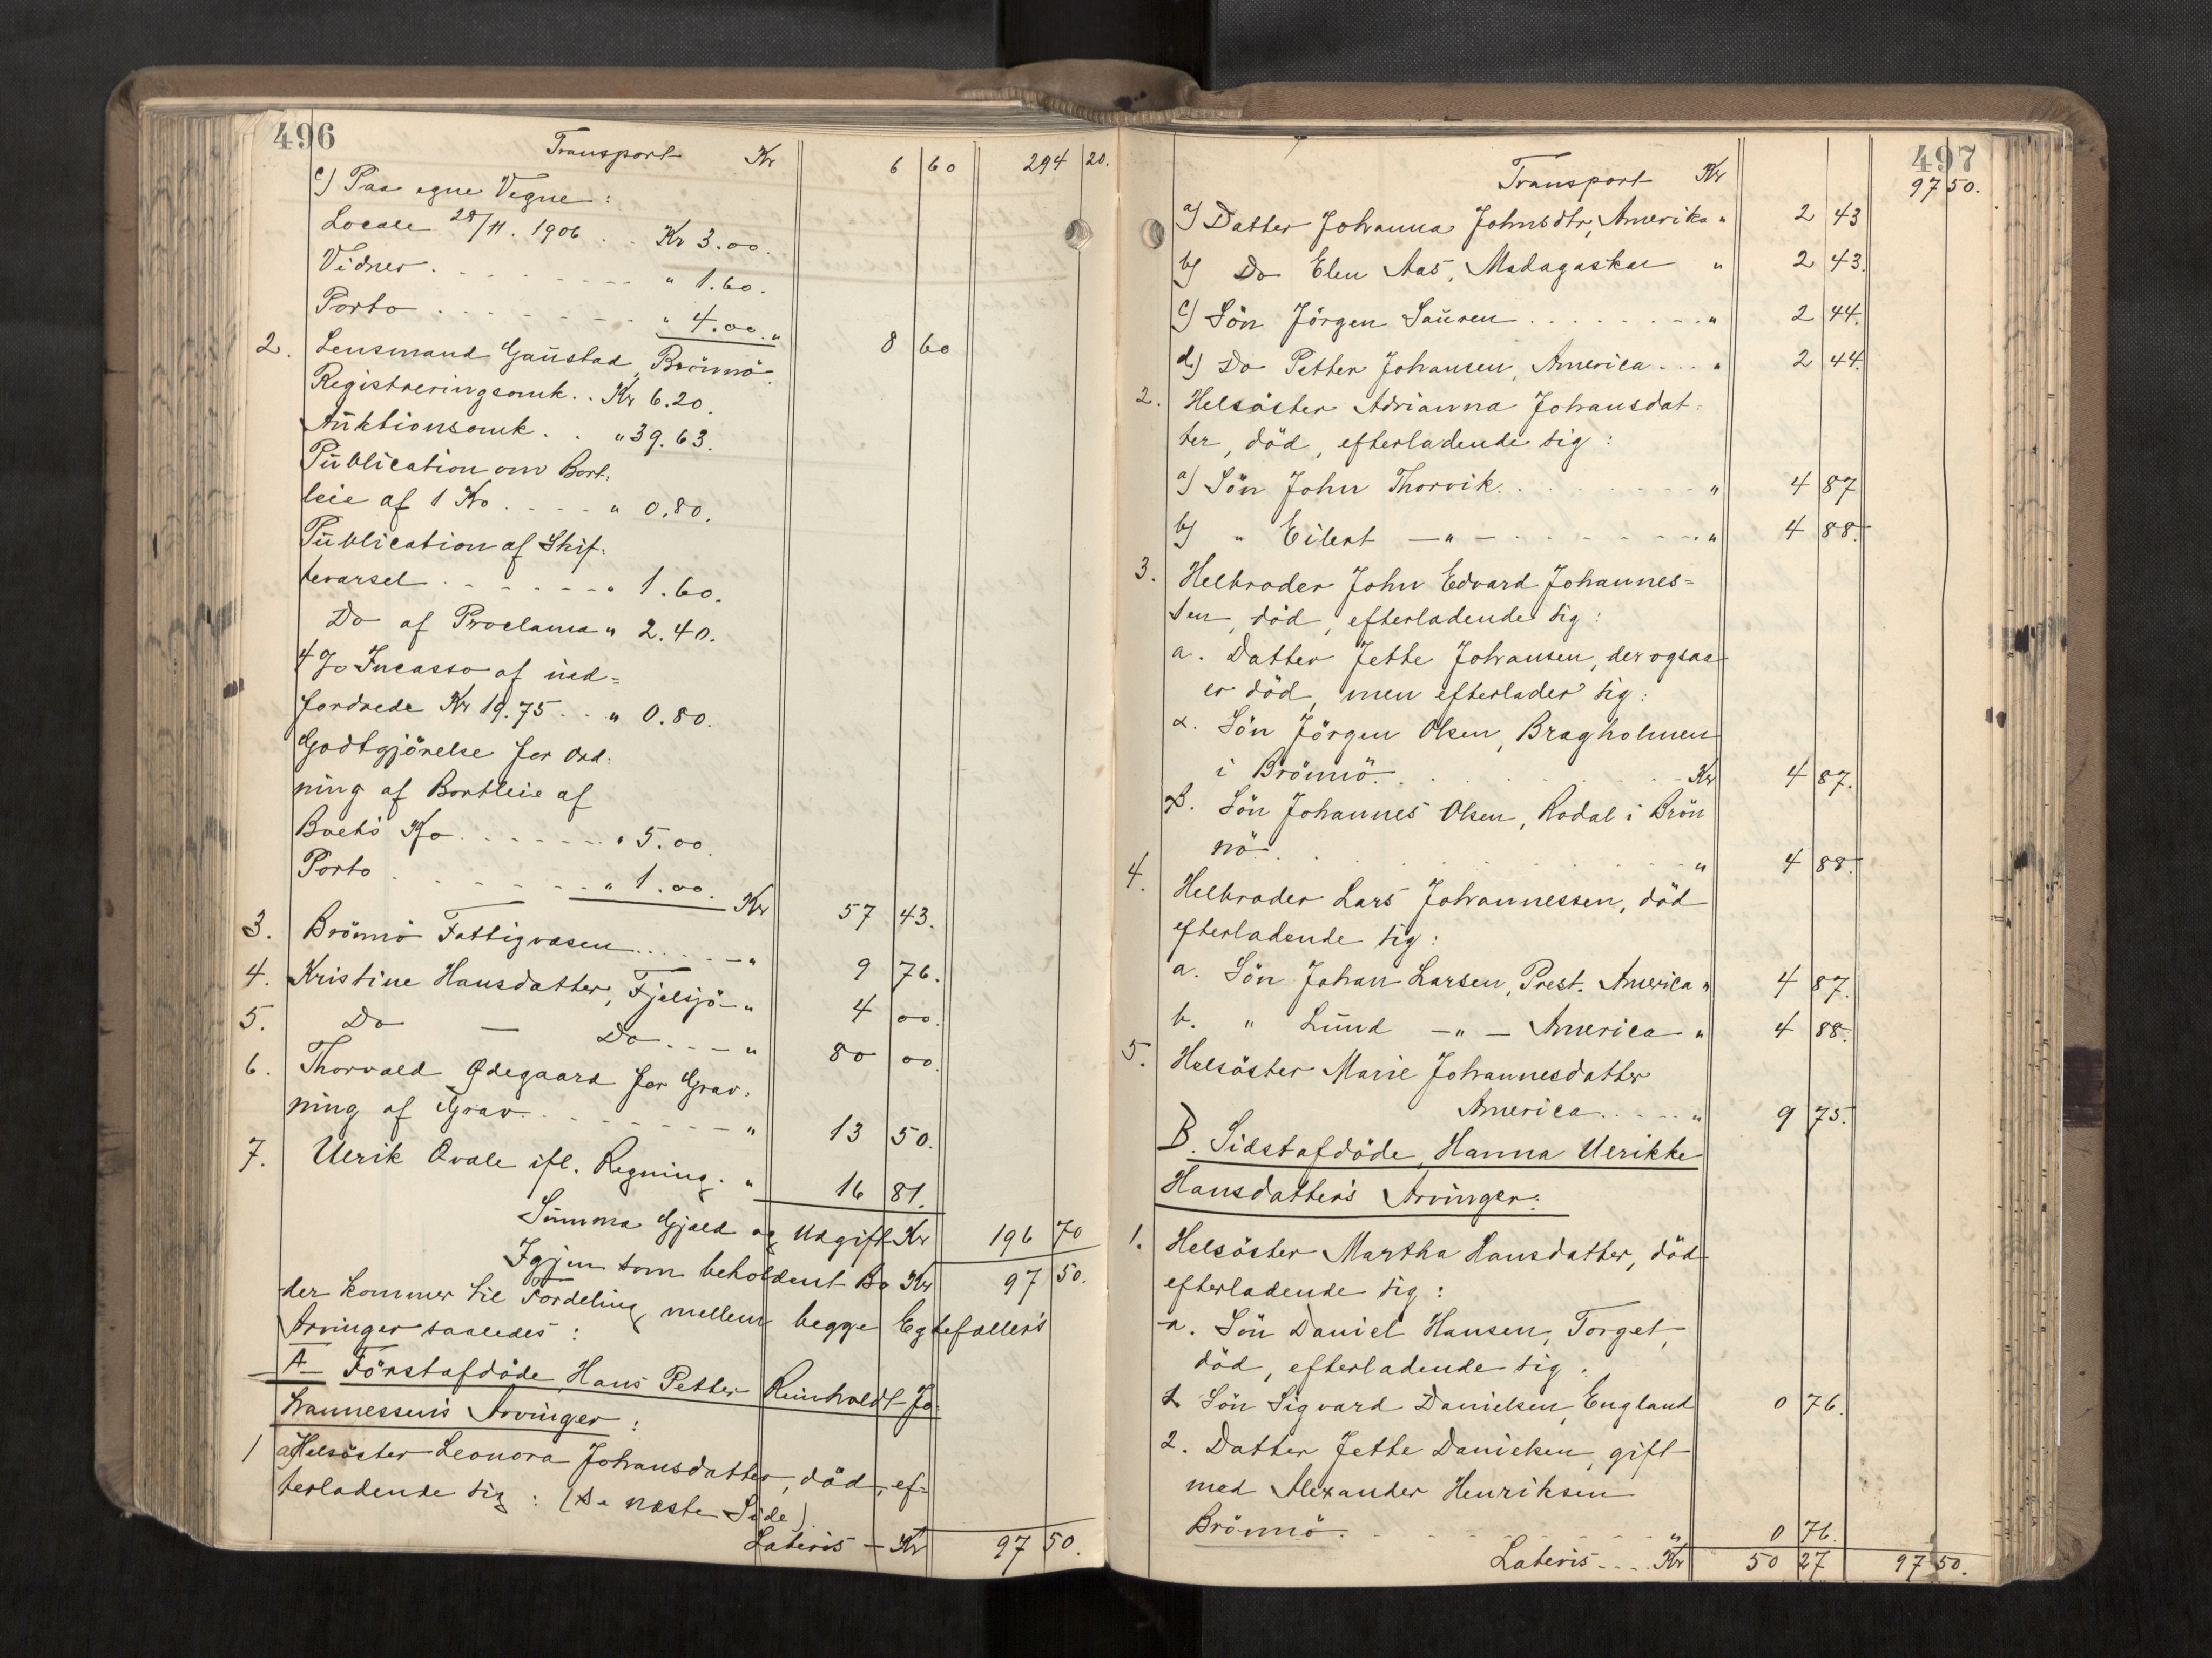 496
Transport Kr 6 60 294 20.
c) Paa egne Vegne:
Locale 28/11. 1906 . . Kr 3.00.
Vidner . . . . . . " 1.60.
Porto . . . . . . " 4.00. " 8 60
2. Lensmand Gaustad, Brönnö.
Registreringsomk. . Kr 6.20.
Auktionsomk. . . " 39.63.
Publication om Bort-
leie af 1 Ko . . . . " 0.80.
Publication af Skif-
tevarsel . . . . . . " 1.60.
Do af Proclama " 2.40.
4 % Incasso af ind=
fordrede Kr 19.75 . . " 0.80.
Godtgjörelse for Ord-
ning af Bortleie af
Boets Ko . . . . . . " 5.00.
Porto . . . . . . " 1.00. Kr 57 43.
3. Brönnö Fattigvæsen . . . . . " 9 76.
4. Kristine Hansdatter, Fjelsjö - " 4 00.
5. Do — Do . . . " 80 00.
6. Thorvald Ødegaard for Grav-
ning af Grav . . . . . . " 13 50.
7. Ulrik Qvale ifl. Regning. " 16 81.
Summa Gjæld og Udgift Kr 196 70
Igjen som beholdent Bo Kr 97 50.
der kommer til Fordeling mellem begge Egtefællers
Arvinger saaledes:
A Förstafdöde, Hans Petter Reinholdt Jo-
hannessens Arvinger:
1 a) Helsöster Leonora Johansdatter, död, ef-
terladende sig: (Se næste Side).
Lateris — Kr 97 50.
497
Transport Kr 97 50.
a) Datter Johanna Johnsdtr, Amerika " 2 43
b) Do Elen Aas, Madagaskar " 2 43.
c) Sön Jörgen Sauren . . . . . . . " 2 44.
d) Do Petter Johansen, America . . . " 2 44.
2. Helsöster Adrianna Johansdat-
ter, död, efterladende sig:
a) Sön John Thorvik. . . . . . . " 4 87
b) " Eilert — " — . . . . . . " 4 88.
3. Helbroder John Edvard Johannes=
sen, död, efterladende sig:
a. Datter Jette Johansen, der ogsaa
er död, men efterlader sig:
α. Sön Jörgen Olsen, Bragholmen
i Brönnö. . . . . . . . Kr 4 87.
β. Sön Johannes Olsen, Rodal i Brön
nö . . . . . . . . " 4 88.
4. Helbroder Lars Johannessen, död
efterladende sig:
a. Sön Johan Larsen, Prest. America " 4 87.
b. " Lund — " — America " 4 88.
5. Helsöster Marie Johannesdatter
America . . . . " 9 75.
B. Sidstafdöde, Hanna Ulrikke
Hansdatter's Arvinger:
1. Helsöster Martha Hansdatter, död
efterladende sig:
a. Sön Daniel Hansen, Torget,
död, efterladende sig:
1. Sön Sigvard Danielsen, England 0 76.
2. Datter Jette Danielsen, gift
med Alexander Henriksen
Brönnö . . . . . . . . " 0 76.
Lateris . . . . Kr 50 27 97 50.